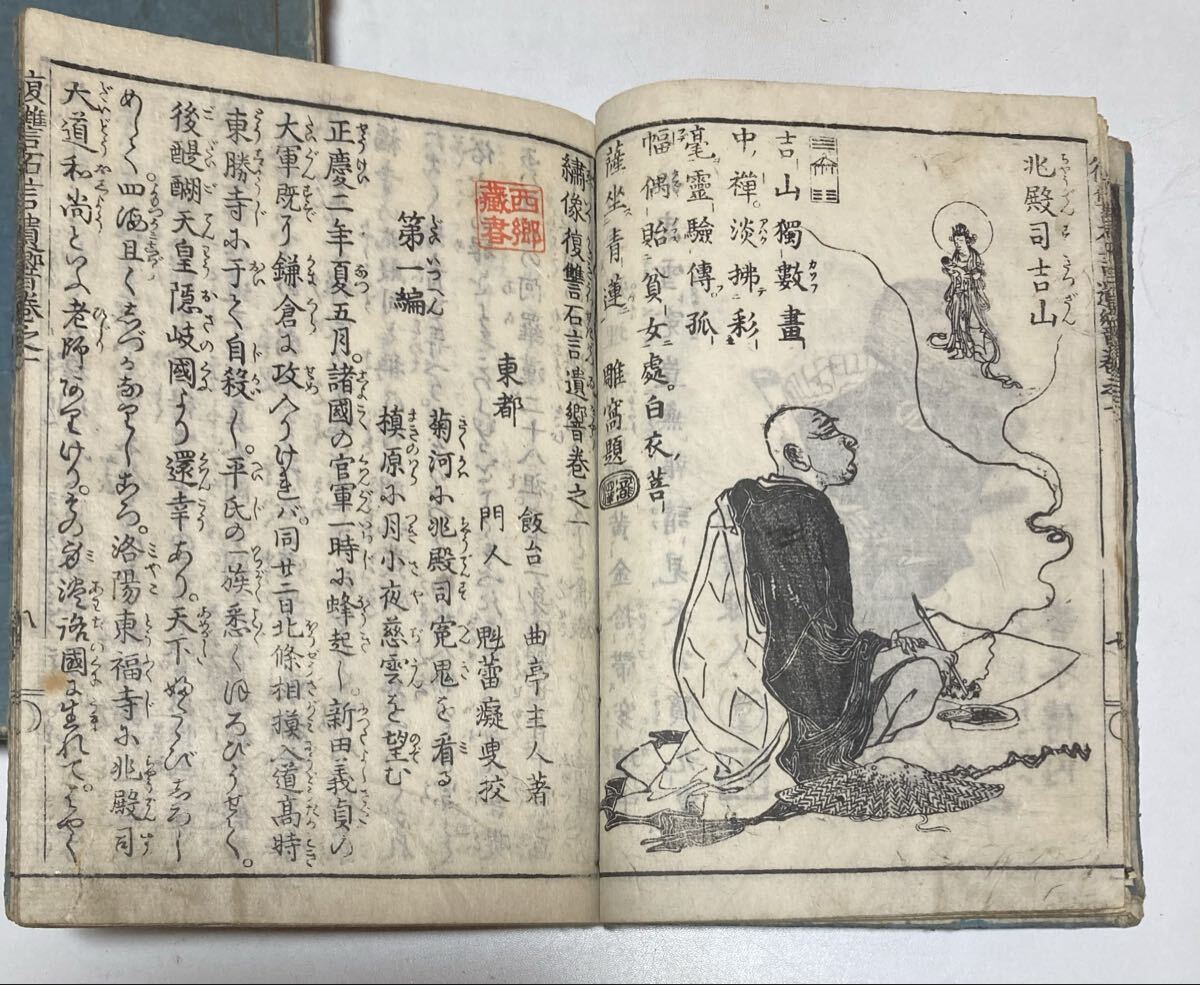 兆殿司吉山
吉山獨數畫
中禪淡拂彩
毫靈驗傳孤
幅偶貽貧女處。白衣菩
薩坐青蓮 雕窩題
繍像復讐石言遺響巻之一
東都 飯台 曲亭主人著
門人 魁蕾癡叟挍
第一編 菊河に兆殿司寃鬼を看る
槙原に月小夜慈雲を望む
西郷藏書
正慶二年夏五月。諸國の官軍一時に蜂起し。新田義貞の
大軍既に鎌倉に攻入りければ。同廿二日北條相摸入道高時
東勝寺に于て自殺し。平氏の一族悉くほろびうせて。
後醍醐天皇隠岐國より還幸あり。天下ふたゝびしろし
めして。四海且くしづかなりしころ。洛陽東福寺に兆殿司
大道和尚といふ老師ありけり。その身淡路國に生れて。はやく
復讐石言遺響巻之一 八